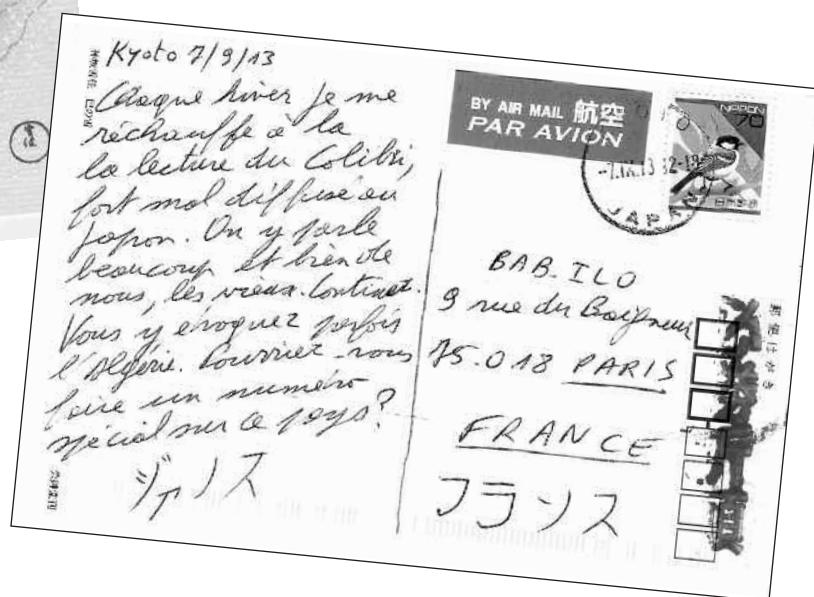 Kyoto 7/9/13
Chaque hiver je me
réchauffe à la
la lecture du Colibri,
fort mal diffusé au
Japon. On y parle
beaucoup et bien de
nous, les vieux-Continet.
Vous y évoquez parfois
l'Algérie. Pourriez-vous
faire un numéro
spécial sur ce pays?
BY AIR MAIL 航空
PAR AVION
NIPPON
70
日本郵便
-7.IX.13
JAPAN
BAB.ILO
9 rue du Baigneur
75.018 PARIS
FRANCE
フランス
郵便はがき